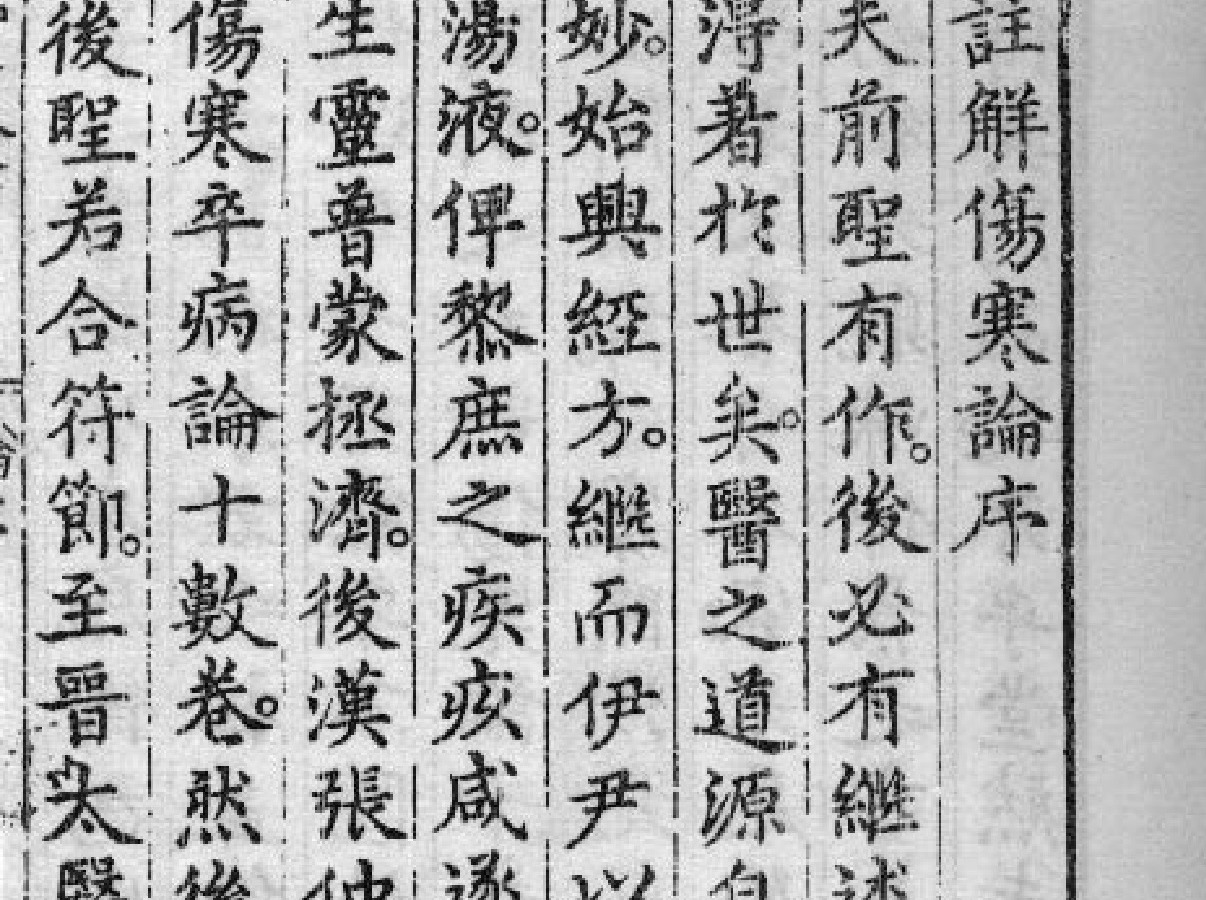 註解傷寒論序
夫前聖有作。後必有繼述
淂著於世矣。醫之道源自
妙。始興經方。繼而伊尹以
湯液。俾黎庶之疾疚咸遂
生靈普蒙拯濟。後漢張仲
傷寒卒病論十數卷。然後
後聖若合符節。至晉太醫